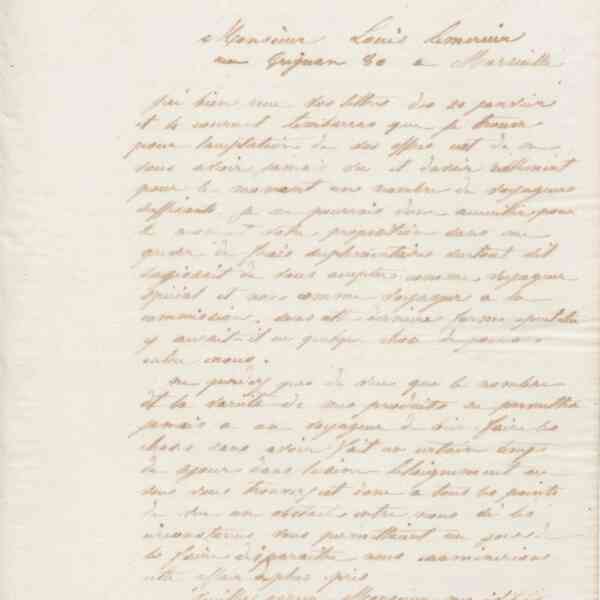 Monsieur Louis Lemercier
rue Grignan 80 a Marseille
J'ai bien reçu vos lettres des 20 janvier
et le courant l'embarras que je trouve
pour l'acceptation de vos offres est de ne
vous avoir jamais vu et d'avoir
pour le moment un nombre de voyageurs
suffisants je ne pourrais donc accueillir pour
le moment votre proposition sans me
grever de frais supplémentaires surtout s'il
s'agissait de vous accepter comme voyageur
spécial et non comme voyageur a la
commission. sous cette dernière forme peut-être
y aurait-il quelque chose de possible
entre nous.
ne perdez pas de vue que le nombre
et la variété de mes produits ne permettra
jamais a un voyageur de rien faire de
chose sans avoir fait un certain temps
de séjour dans l'usine l'éloignement ou
vous vous trouvez est donc a tous les points
de vue un obstacle entre nous si les
circonstances vous permettaient un jour de
le faire disparaitre nous examinerions
cette affaire de plus près
Monsieur